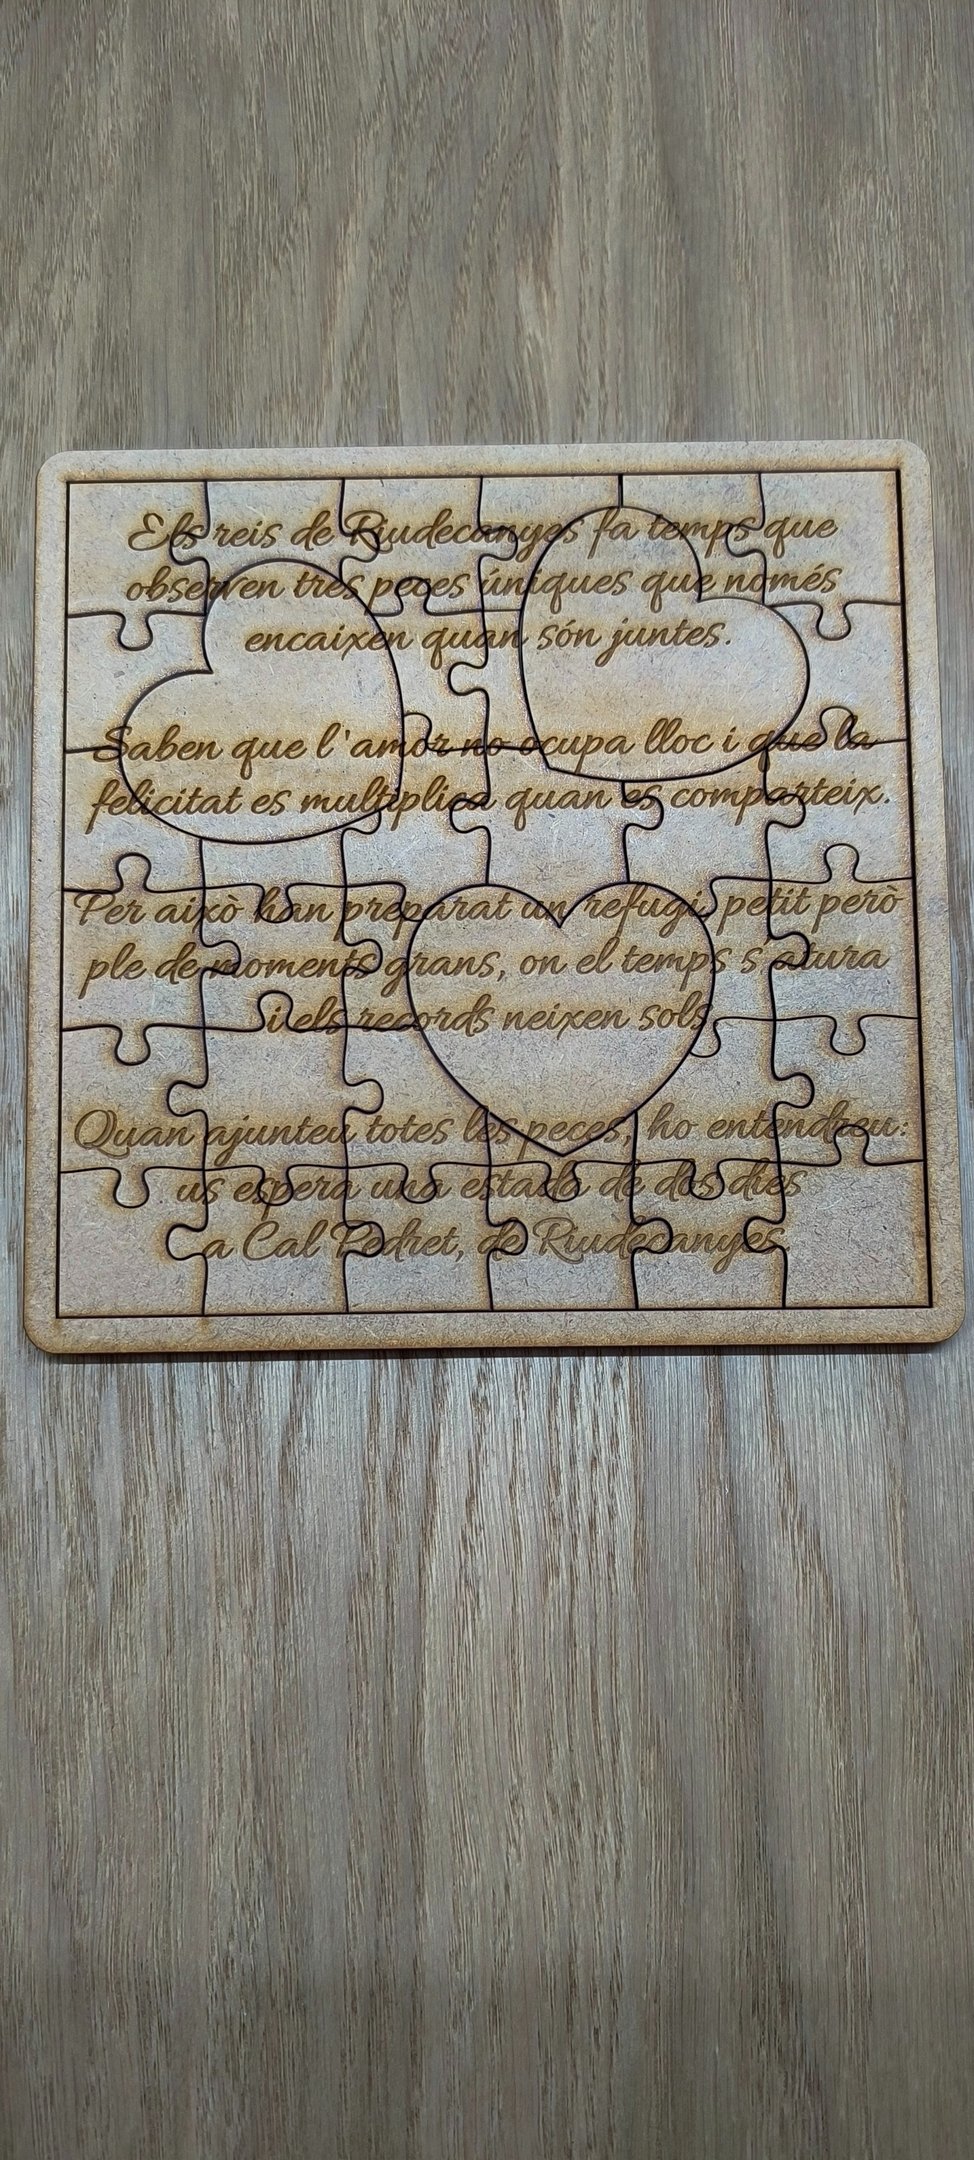 Els reis de Riudecanyes fa temps que
observen tres peces úniques que només
encaixen quan són juntes.
Saben que l'amor no ocupa lloc i que la
felicitat es multiplica quan es comparteix.
Per això han preparat un refugi, petit però
ple de moments grans, on el temps s'atura
i els records neixen sols.
Quan ajunteu totes les peces, ho entendreu:
us espera una estada de dos dies
a Cal Pedret, de Riudecanyes.